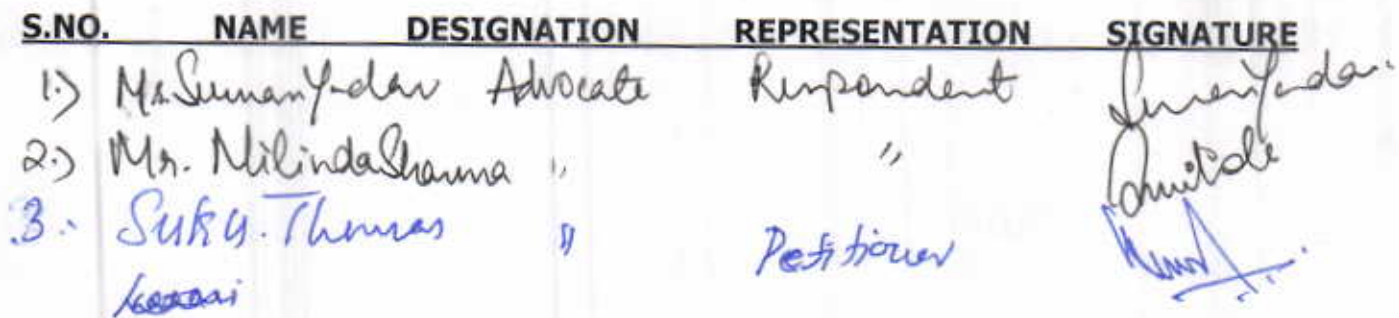 S.NO. NAME DESIGNATION REPRESENTATION SIGNATURE
1.) Ms Suman Yadav Advocate Respondent Suman Yadav.
2.) Mr. Milinda Sharma " "
3. Suku. Thomas " Petitioner